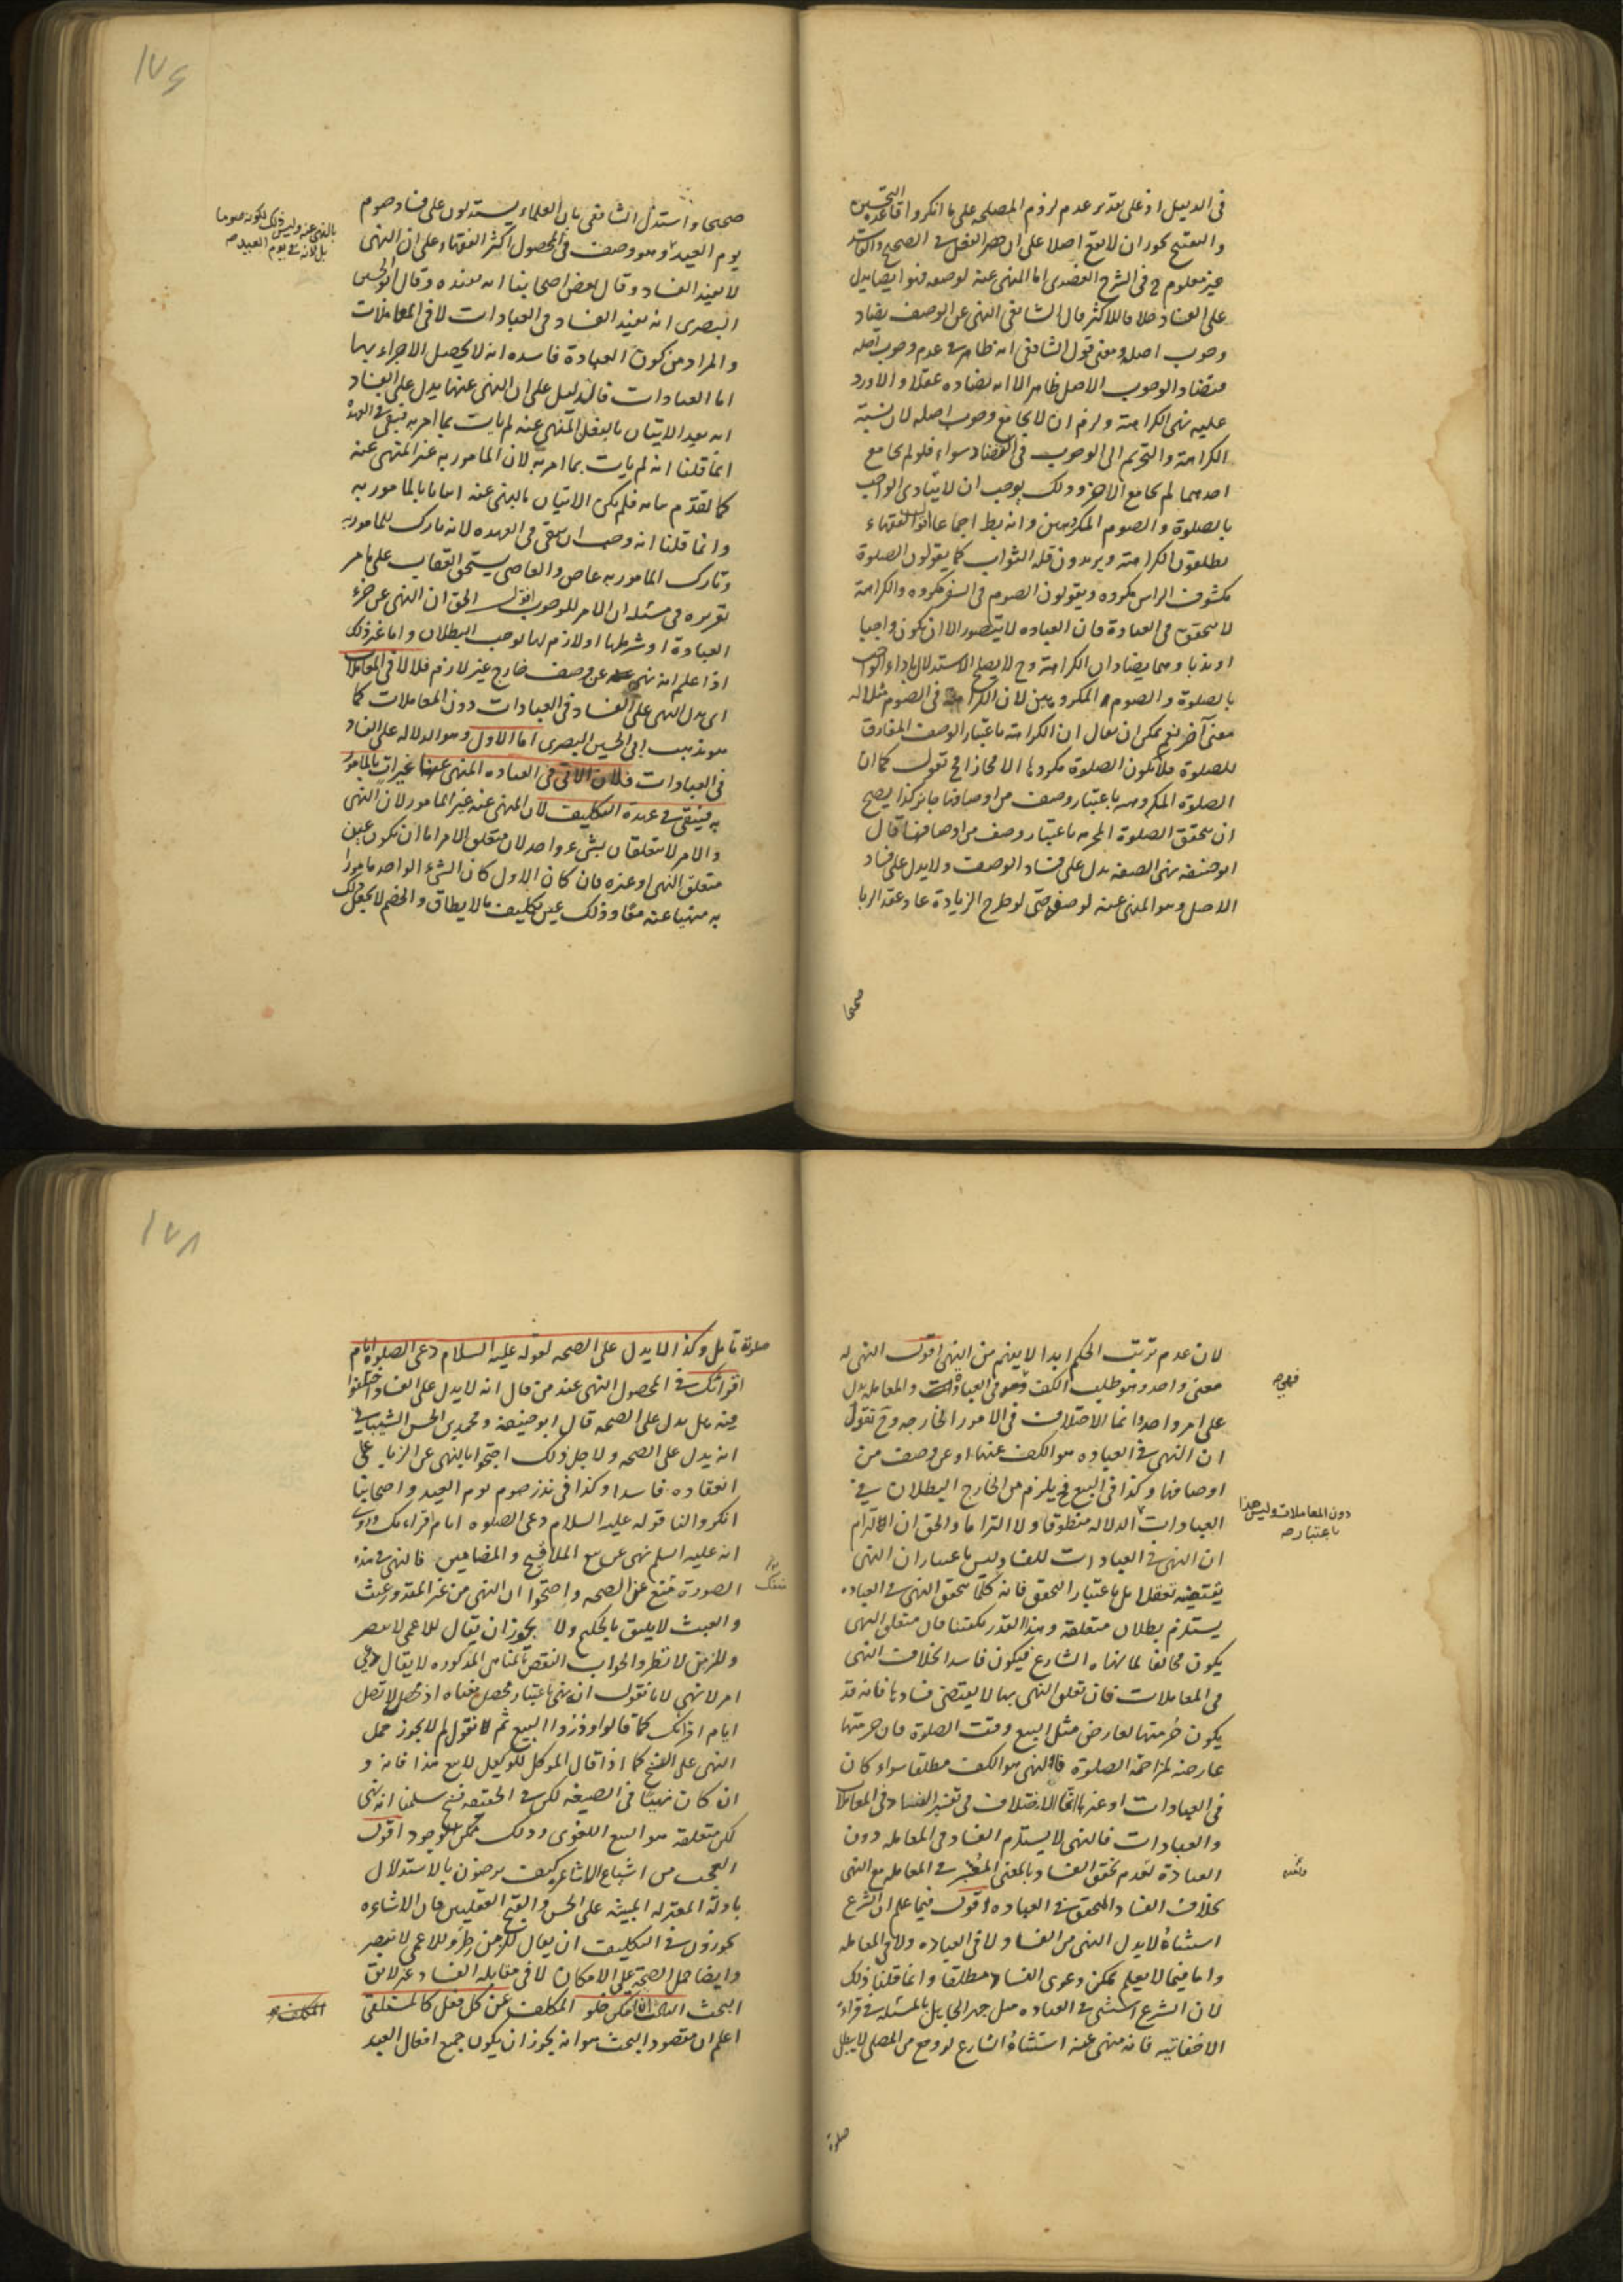 فى الدليل او على تقدير عدم لزوم المصلحه على ما انكروا قاعدة التحسين
والتقبيح يجوز ان لا يقع اصلا على ان حصر الفعل فى الصحيح والفاسد
غير معلوم و فى الشرح العضدى اما المنهى عنه لوصفه فهو ايضا يدل
على الفساد خلافا للاكثر قال الشافعى النهى عن الوصف يضاد
وجوب اصله ومعنى قول الشافعى انه ظاهر فى عدم وجوب اصله
فتضاد الوجوب الاصل ظاهرا لا انه يضاده عقلا والا ورد
عليه نهى الكراهة ولزم ان لا يجامع وجوب اصله لان نسبة
الكراهة والتحريم الى الوجوب فى التضاد سواء فلو لم يجامع
احدهما لم يجامع الاخر وذلك يوجب ان لا يتادى الواجب
بالصلوة والصوم المكروهين وانه بط اجماعا اقول الفقهاء
يطلقون الكراهة ويريدون قله الثواب كما يقولون الصلوة
مكشوف الراس مكروه ويقولون الصوم فى السفر مكروه والكراهة
لا يتحقق فى العبادة فان العباده لا يتصور الا ان يكون واجبا
او ندبا وهما يضادان الكراهة وح لا يصلح الاستدلال باداء الواجب
بالصلوة والصوم المكروهين لان الكراهة فى الصوم مثلا له
معنى آخر نعم يمكن ان يقال ان الكراهة باعتبار الوصف المفارق
للصلوة فلا يكون الصلوة مكروها الا مجازا فح نقول كما ان
الصلوة المكروهه باعتبار وصف من اوصافها جايز كذا يصح
ان يتحقق الصلوة المحرمه باعتبار وصف من اوصافها قال
ابو حنيفه نهى الصفه يدل على فساد الوصف ولا يدل على فساد
الاصل وهو المنهى عنه لوصفه حتى لو طرح الزيادة عاد عقد الربا
صحيحا
١٧٦
صحيحا واستدل الشافعى بان العلماء يستدلون على فساد صوم
يوم العيد وهو وصف فى المحصول اكثر الفقهاء على ان النهى
بالنهى عنه وليس ذلك لكونه صوما
بل لانه فى يوم العيد صح
لا يفيد الفساد وقال بعض اصحابنا انه يفيده وقال ابو الحسين
البصرى انه يفيد الفساد فى العبادات لا فى المعاملات
والمراد من كون العبادة فاسده انه لا يحصل الاجزاء بها
اما العبادات فالدليل على ان النهى عنها يدل على الفساد
انه بعد الاتيان بالفعل المنهى عنه لم يات بما امر به فيبقى فى العهدة
انما قلنا انه لم يات بما امر به لان المامور به غير المنهى عنه
كما تقدم بيانه فلم يكن الاتيان بالمنهى عنه اتيانا بالمامور به
وانما قلنا انه وجب ان يبقى فى العهده لانه تارك للمامور به
وتارك المامور به عاص والعاصى يستحق العقاب على ما مر
تقريره فى مسئله ان الامر للوجوب اقول الحق ان النهى عن جزء
العبادة او شرطها او لازم لها يوجب البطلان واما غير ذلك
اذا علم انه نهى عن وصف خارج غير لازم فلا لا فى المعاملات
اى يدل النهى على الفساد فى العبادات دون المعاملات كما
هو مذهب ابى الحسين البصرى اما الاول وهو الدلاله على الفساد
فى العبادات فلان الاتى فى العباده المنهى عنها غير ات بالمامور
به فيبقى فى عهدة التكليف لان المنهى عنه غير المامور لان النهى
والامر لا يتعلقان بشىء واحد لان متعلق الامر اما ان يكون عين
متعلق النهى او غيره فان كان الاول كان الشىء الواحد مامورا
به منهيا عنه معا وذلك عين تكليف ما لا يطاق والخصم لا يجعل ذلك
لان عدم ترتب الحكم ابدا لا يفهم من النهى اقول النهى له
معنى واحد وهو طلب الكف وهو فى العبادات والمعامله يدل
فهى صح
على امر واحد وانما الاختلاف فى الامور الخارجه وح نقول
ان النهى فى العباده هو الكف عنها او عن وصف من
اوصافها وكذا فى البيع فح يلزم من الخارج البطلان فى
العبادات الدلاله منطوقا ولا التزاما والحق ان الالتزام
دون المعاملات وليس هذا
باعتبار صح
ان النهى فى العبادات للفساد ليس باعتبار ان النهى
يقتضيه تعقلا بل باعتبار التحقق فانه كلما تحقق النهى فى العباده
يستلزم بطلان متعلقه وهذا القدر يكفينا فان متعلق النهى
يكون مخالفا لما نهاه الشارع فيكون فاسدا بخلاف النهى
فى المعاملات فان تعلق النهى بها لا يقتضى فسادها فانه قد
يكون حرمتها لعارض مثل البيع وقت الصلوة فان حرمتها
عارضه لمزاحمة الصلوة فالنهى هو الكف مطلقا سواء كان
فى العبادات او غيرها انما الاختلاف فى تفسير الفساد فى المعاملات
والعبادات فالنهى لا يستلزم الفساد فى المعامله دون
العبادة لعدم تحقق الفساد بالمعنى المعتبر فى المعامله مع النهى
بخلاف الفساد المتحقق فى العباده اقول فيما علم ان الشرع
استثناه لا يدل النهى من الفساد لا فى العباده ولا فى المعامله
واما فيما لا يعلم يمكن دعوى الفساد مطلقا وانما قلنا ذلك
لان الشرع استثنى فى العباده مثل جهر الجاهل بالمسئله فى قراءة
الاخفاتيه فانه منهى عنه استثناه الشارع لو وقع من المصلى لا يبطل
صلوة
١٧٨
صلوة تامل وكذا لا يدل على الصحه لقوله عليه السلام دعى الصلوة ايام
اقرائك فى المحصول النهى عند من قال انه لا يدل على الفساد اختلفوا
فيه هل يدل على الصحه قال ابو حنيفه ومحمد بن الحسن الشيبانى
انه يدل على الصحه ولاجل ذلك احتجوا بالنهى عن الربا على
انعقاده فاسدا وكذا فى نذر صوم يوم العيد واصحابنا
انكروا لنا قوله عليه السلام دعى الصلوه ايام اقراءك وروى
انه عليه السلم نهى عن بيع الملاقيح والمضامين فالنهى فى هذه
الصورة منفك عن الصحه واحتجوا ان النهى عن غير المقدور عبث
والعبث لا يليق بالحكيم ولا يجوز ان يقال للاعمى لا تبصر
وللزمن لا تطر والجواب النقض بالمناهى المذكوره لا يقال دعى
امر لا نهى لانا نقول انه نهى باعتبار محصل معناه اذ محصله لا تصل
ايام اقرائك كما قالوا وذروا البيع ثم نقول لم لا يجوز حمل
النهى على الفسخ كما اذا قال الموكل للوكيل لا تبع هذا فانه و
ان كان نهيا فى الصيغه لكن فى الحقيقه فسخ سلمنا انه نهى
لكن متعلقه هو البيع اللغوى وذلك ممكن الوجود اقول
العجب من اشياع الاشاعره كيف يرضون بالاستدلال
بادلة المعتزله المبنيه على الحسن والقبح العقليين فان الاشاعره
يجوزون فى التكليف ان يقال للزمن طر وللاعمى لا تبصر
وايضا حمل الصحه على الامكان لا فى مقابله الفساد غير لايق
البحث الثالث يمكن خلو المكلف عن كل فعل كالمستلقى
اعلم ان مقصود البحث هو انه يجوز ان يكون جميع افعال العبد